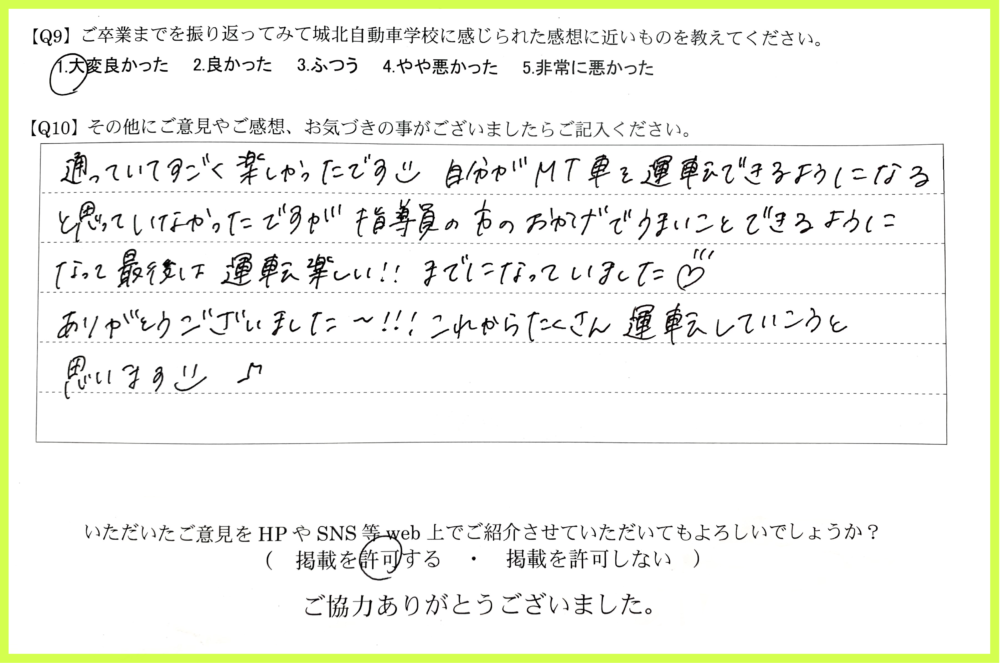 【Q9】ご卒業までを振り返ってみて城北自動車学校に感じられた感想に近いものを教えてください。
1.大変良かった 2.良かった 3.ふつう 4.やや悪かった 5.非常に悪かった
【Q10】その他にご意見やご感想、お気づきの事がございましたらご記入ください。
通っていてすごく楽しかったです 自分がMT車を運転できるようになる
と思っていなかったですが 指導員の方のおかげでうまいことできるように
なって最後は 運転楽しい!! までになっていました♡
ありがとうございました〜!!! これからたくさん 運転していこうと
思います ♪
いただいたご意見をHPやSNS等web上でご紹介させていただいてもよろしいでしょうか？
( 掲載を許可する ・ 掲載を許可しない )
ご協力ありがとうございました。